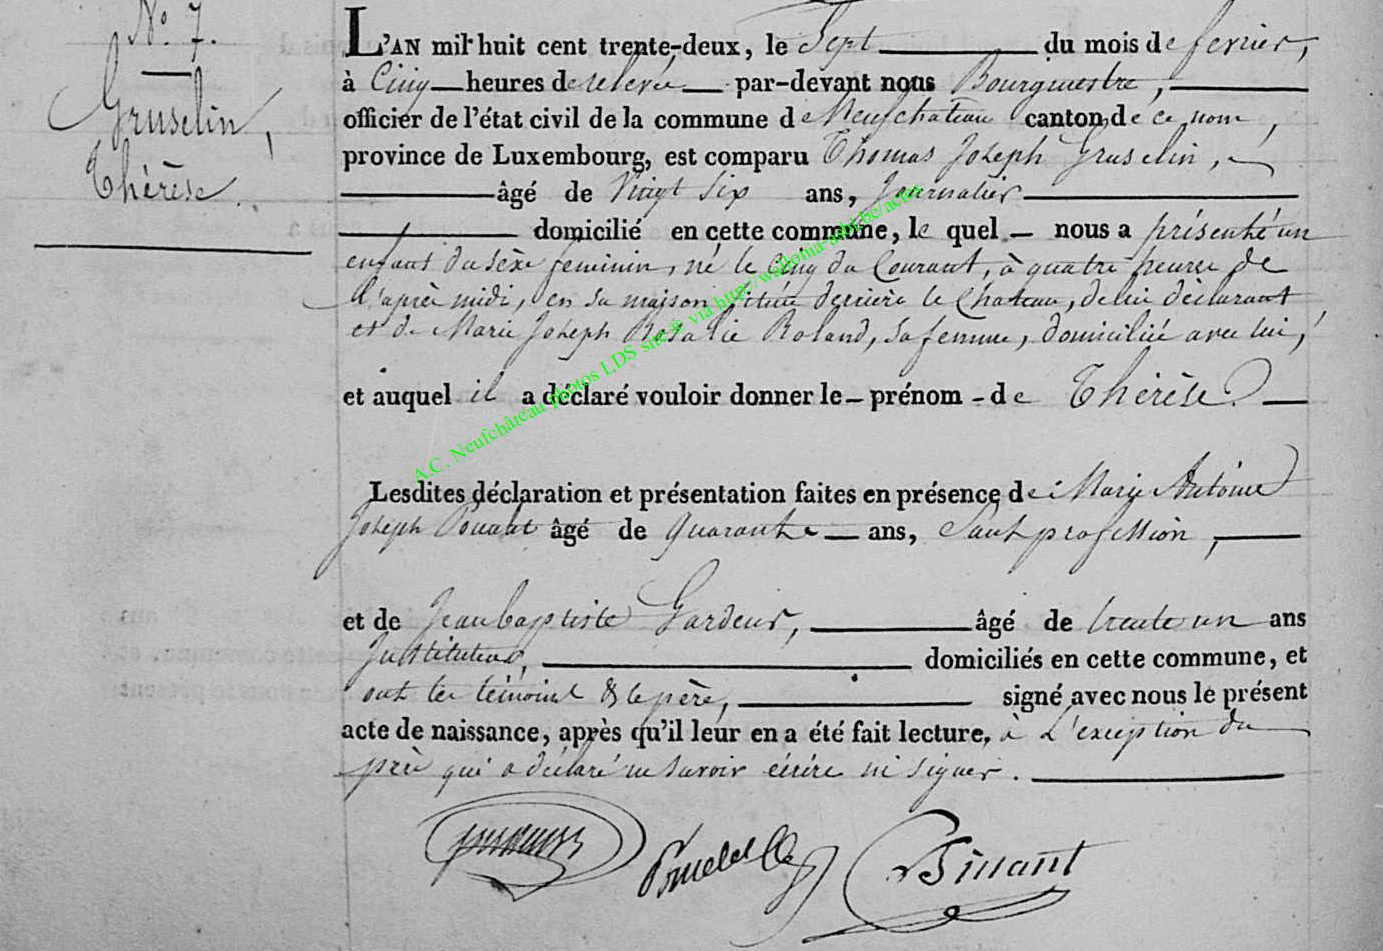 N.º 7.
Gruselin,
Thérèse.
L'AN mil huit cent trente-deux, le Sept du mois de fevrier,
à Cinq heures de relevée par-devant nous Bourgmestre,
officier de l'état civil de la commune de Neufchateau canton de ce nom,
province de Luxembourg, est comparu Thomas Joseph Gruselin,
âgé de Vingt Six ans, Journalier
domicilié en cette commune, le quel nous a présenté un
enfant du sexe feminin, né le Cinq du Courant, à quatre heures de
l'après midi, en sa maison située derrière le Chateau, de lui déclarant
et de Marie Joseph Rosalie Roland, sa femme, domiciliée avec lui,
et auquel il a déclaré vouloir donner le prénom de Thérèse.
Lesdites déclaration et présentation faites en présence de Marie Antoine
Joseph âgé de quarante ans, Sans profession,
et de Jean baptiste Gardeur, âgé de trente un ans
Instituteur, domiciliés en cette commune, et
ont les témoins & le père, signé avec nous le présent
acte de naissance, après qu'il leur en a été fait lecture, à L'exception du
père qui a déclaré ne savoir écrire ni signer.
A.C. Neufchâteau photos LDS site® via http://wallonia-asbl.be/actes